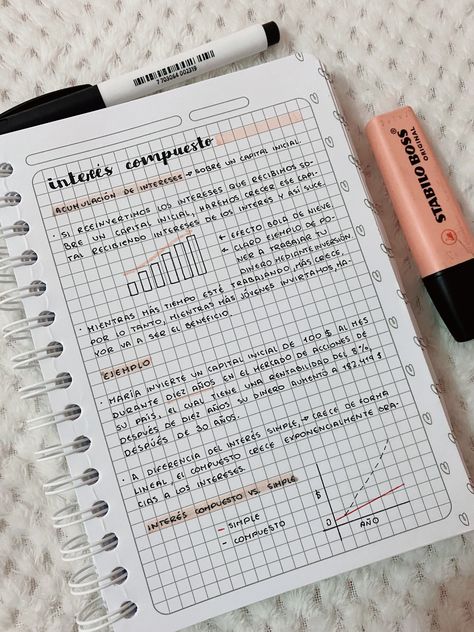 7 703064 002319
interés compuesto
ACUMULACIÓN DE INTERESES → SOBRE UN CAPITAL INICIAL
· SI REINVERTIMOS LOS INTERESES QUE RECIBIMOS SO-
BRE UN CAPITAL INICIAL, HAREMOS CRECER ESE CAPI-
TAL RECIBIENDO INTERESES DE LOS INTERÉS Y ASÍ SUCE.
← EFECTO BOLA DE NIEVE.
CLARO EJEMPLO DE PO-
NER A TRABAJAR TU
DINERO MEDIANTE INVERSIÓN
· MIENTRAS MÁS TIEMPO ESTÉ TRABAJANDO, MÁS CRECE,
POR LO TANTO, MIENTRAS MÁS JÓVENES INVIRTAMOS, MA-
YOR VA A SER EL BENEFICIO
EJEMPLO
· MARÍA INVIERTE UN CAPITAL INICIAL DE 100 $ AL MES
DURANTE DIEZ AÑOS EN EL MERCADO DE ACCIONES DE
SU PAÍS, EL CUAL TIENE UNA RENTABILIDAD DEL 8%,
DESPUÉS DE DIEZ AÑOS SU DINERO AUMENTÓ A
DESPUÉS DE 30 AÑOS.
· A DIFERENCIA DEL INTERÉS SIMPLE, → CRECE DE FORMA
LINEAL, EL COMPUESTO CRECE EXPONENCIALMENTE GRA-
CIAS A LOS INTERESES.
INTERÉS COMPUESTO VS. SIMPLE
— SIMPLE
- COMPUESTO
$
0
AÑO
STABILO BOSS
ORIGINAL